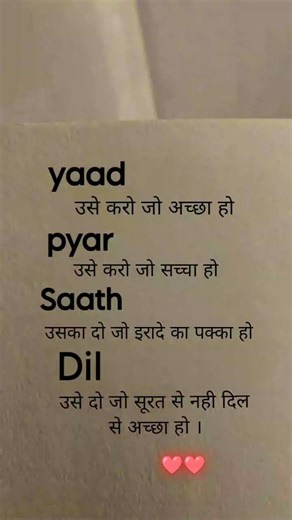 yaad
उसे करो जो अच्छा हो
pyar
उसे करो जो सच्चा हो
Saath
उसका दो जो इरादे का पक्का हो
Dil
उसे दो जो सूरत से नही दिल
से अच्छा हो ।